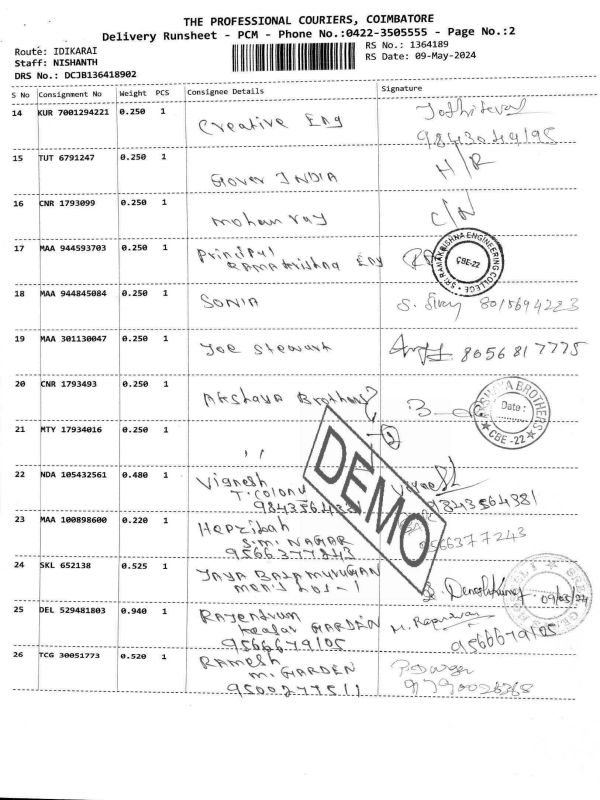 THE PROFESSIONAL COURIERS, COIMBATORE
Delivery Runsheet - PCM - Phone No.:0422-3505555 - Page No.:2
Route: IDIKARAI
Staff: NISHANTH
DRS No.: DCJB136418902
RS No.: 1364189
RS Date: 09-May-2024
S No Consignment No Weight PCS Consignee Details Signature
14 KUR 7001294221 0.250 1 Creative Eng
9843049195
15 TUT 6791247 0.250 1 Gover INDIA H/R
16 CNR 1793099 0.250 1 mohan ray C/N
17 MAA 944593703 0.250 1 Principal
RAMA Krishna Eng
SRI RAMAKRISHNA ENGINEERING COLLEGE CBE-22
18 MAA 944845084 0.250 1 SONIA 8015694223
19 MAA 301130047 0.250 1 Joe Stewart 8056817775
20 CNR 1793493 0.250 1 Akshaya Brothers
AKSHAYA BROTHERS Date : CBE -22
21 MTY 17934016 0.250 1 ,, 2
22 NDA 105432561 0.480 1 Vignesh
T. Colony
9843564381 9843564381
23 MAA 100898600 0.220 1 Hepzibah
S.M. NAGAR
9566377243 9566377243
DEMO
24 SKL 652138 0.525 1 JAYA BALAMURUGAN
men's hos-1 09/05/24
25 DEL 529481803 0.940 1 Rajendran
GARDEN
9566679105 9566679105
26 TCG 30051773 0.520 1 RAMESH
M. GARDEN
9500277511 9790026368